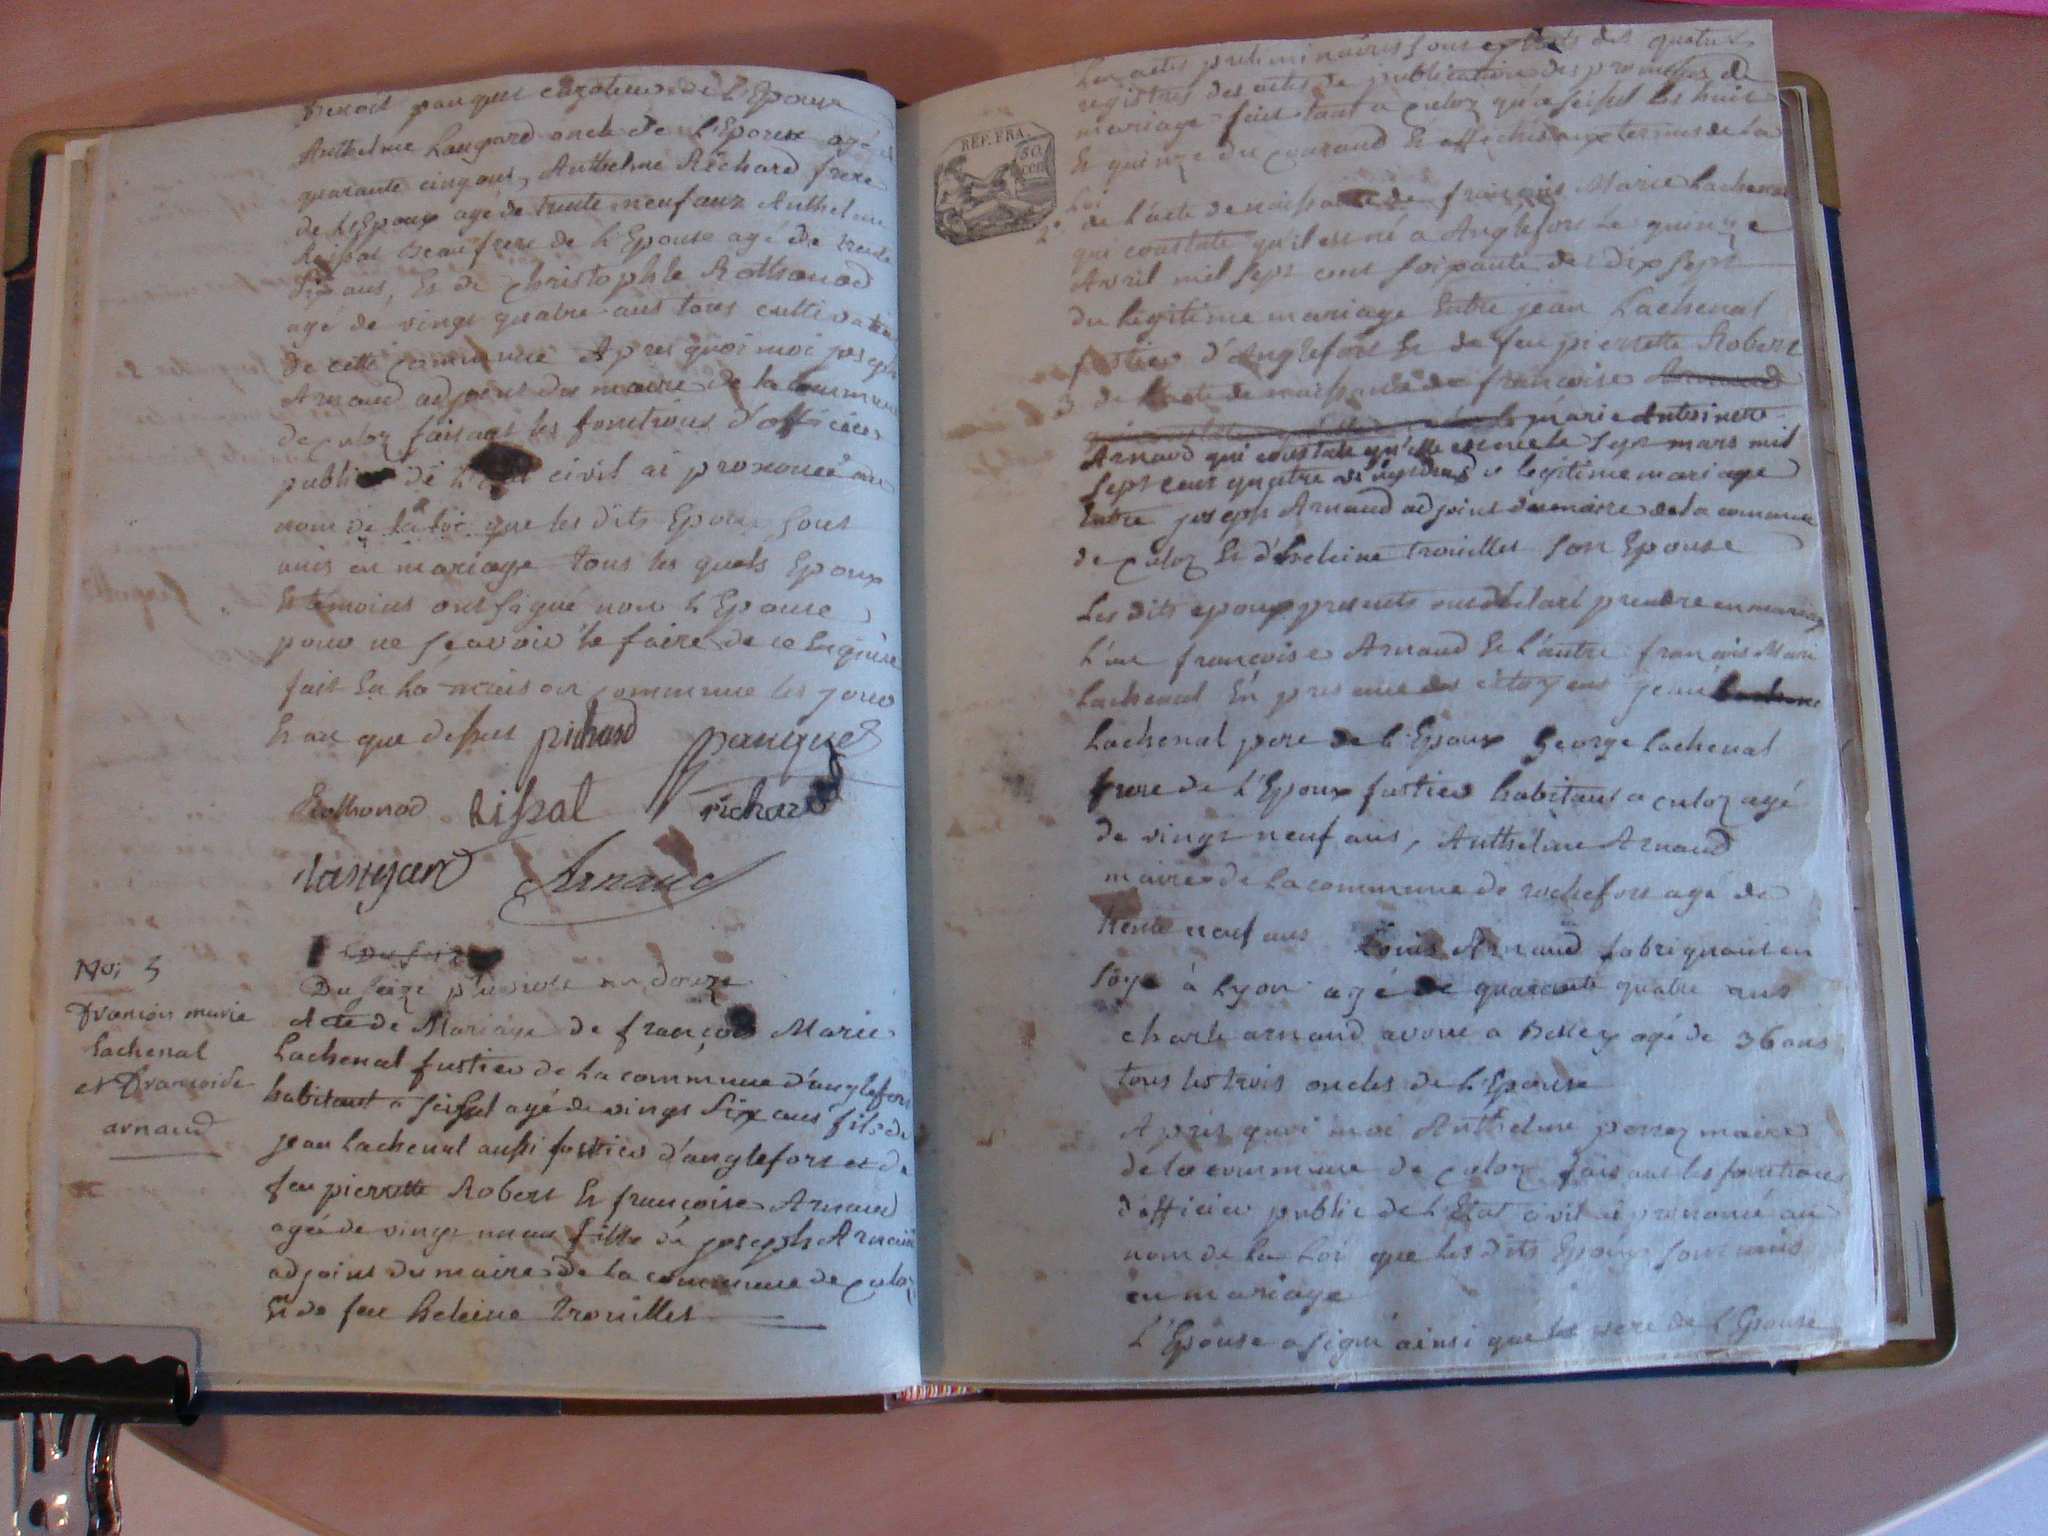 Benoit pauquet curateur de l'Epouse
Anthelme Langard oncle de l'Epoux agé de
quarante cinq ans, Anthelme Richard frere
de l'Epoux agé de trente neuf ans Anthelme
Rissal Beau frere de l'Epouse agé de trente
Six ans, Et de Christophle Rothonod
agé de vingt quatre ans tous cultivateurs
de cette commune Apres quoi moi joseph
Arnaud adjoint du maire de la commune
de culoz faisant les fonctions d'officier
public de l' civil ai prononcé au
nom de la loi que les dits Epoux sont
unis en mariage tous les quels Epoux
Et temoins ont signé non l'Epouse
pour ne sçavoir le faire de ce Enquise
fait En la maison commune les jour
Et an que dessus pichard pauquet
Rothonod Rissal richard
Arnaud
No; 5
Du seize pluviose an douze
francois marie
Lachenal
et francoise
arnaud
Acte de Mariage de françois Marie
Lachenal fustier de la commune d'anglefort
habitant a seissel agé de vingt Six ans fils de
jean Lachenal aussi fustier d'anglefort et de
feu pierrette Robert Et françoise Arnaud
agée de vingt un an fille de joseph Arnaud
adjoint du maire de la commune de culoz
Et de feu heleine Trouillet
Les actes preliminaires sont extraits des quatre
registres des actes de publication des promesses de
mariage fait tant a culoz qu'a seissel les huit
Et quinze du courand Et affichés aux termes de la
Loi
REP. FRA.
50
cen
2° de l'acte de naissance de françois Marie Lachenal
qui constate qu'il est né a Anglefort le quinze
Avril mil sept cent soixante dix sept
du legitime mariage Entre jean Lachenal
fustier d'Anglefort Et de feu pierrette Robert
3 de l'acte de naissance de françoise Arnaud
marie Antoinete
Arnaud qui constate qu'elle est née le sept mars mil
sept cent quatre vingt deux legitime mariage
Entre joseph Arnaud adjoint du maire de la commune
de culoz Et d'heleine Trouillet son Epouse
Les dits epoux presents ont déclaré prendre en mariage
l'un françoise Arnaud Et l'autre françois Marie
Lachenal En presence des citoyens jean
Lachenal pere de l'Epoux George Lachenal
frere de l'Epoux fustier habitant a culoz agé
de vingt neuf ans, Anthelme Arnaud
maire de la commune de rochefort agé de
trente neuf ans Louis Arnaud fabriquant en
soye à Lyon agé de quarante quatre ans
charle arnaud avoué a Belley agé de 36 ans
tous les trois oncles de l'Epouse
Apres quoi moi Anthelme perrez maire
de la commune de culoz faisant les fonctions
d'officier public de l'Etat civil ai prononcé au
nom de la Loi que les dits Epoux sont unis
en mariage
L'Epouse a signé ainsi que le pere de l'Epouse